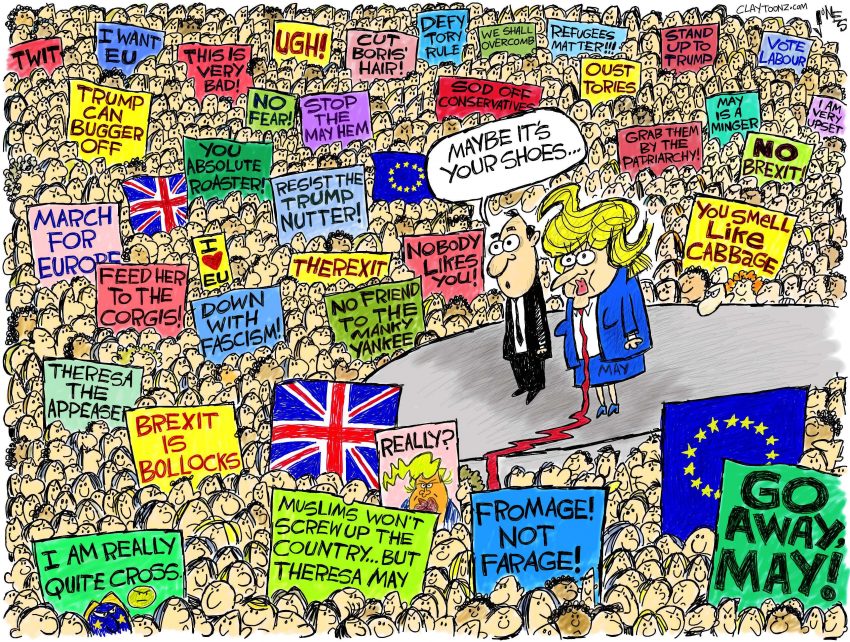 CLAYTOONZ.com
JONES
TWIT
I WANT
EU
THIS IS
VERY
BAD!
UGH!
CUT
BORIS'
HAIR!
DEFY
TORY
RULE
WE SHALL
OVERCOMB
REFUGEES
MATTER!!!
STAND
UP TO
TRUMP
VOTE
LABOUR
TRUMP
CAN
BUGGER
OFF
NO
FEAR!
STOP
THE
MAY HEM
SOD OFF
CONSERVATIVES
OUST
TORIES
MAY
IS A
MINGER
I AM
VERY
UPSET
YOU
ABSOLUTE
ROASTER!
RESIST THE
TRUMP
NUTTER!
MAYBE IT'S
YOUR SHOES...
GRAB THEM
BY THE
PATRIARCHY!
NO
BREXIT!
MARCH
FOR
EUROPE
I
EU
THEREXIT
NOBODY
LIKES
YOU!
YOU SMELL
LIKE
CABBAGE
FEED HER
TO THE
CORGIS!
DOWN
WITH
FASCISM!
NO FRIEND
TO THE
MANKY
YANKEE
MAY
THERESA
THE
APPEASER
BREXIT
IS
BOLLOCKS
REALLY?
I AM REALLY
QUITE CROSS.
MUSLIMS WON'T
SCREW UP THE
COUNTRY...BUT
THERESA MAY
FROMAGE!
NOT
FARAGE!
GO
AWAY,
MAY!